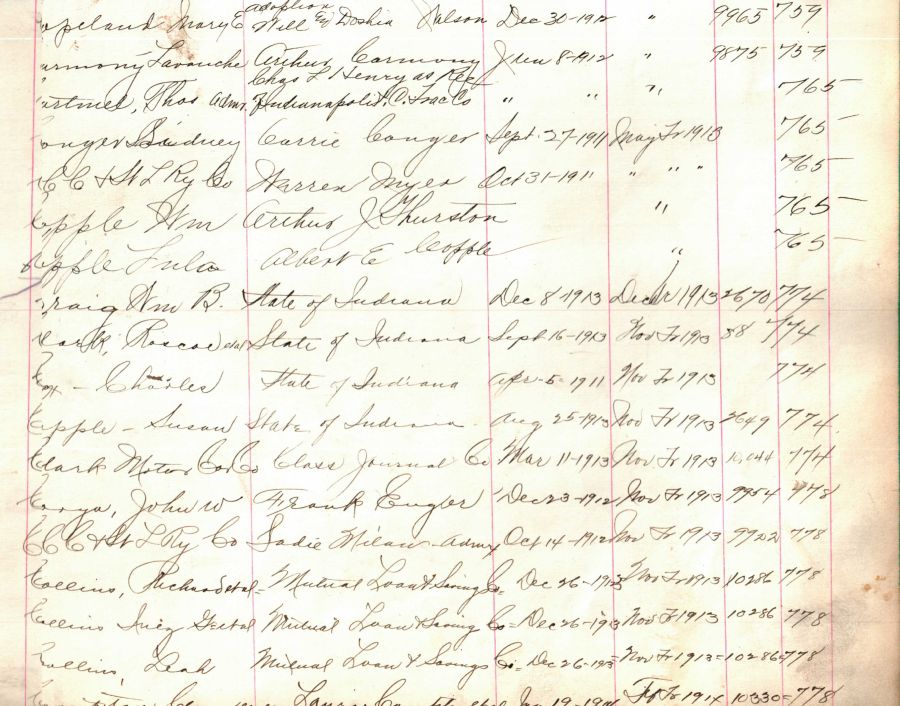 opeland Mary E adoption Will & Doshia Nelson Dec 30-1912 " 9965 759
armony Lavouche Arthur Carmony Jun 8-1912 " 9875 759
Chas L Henry as Rec
Thos Admr. Indianapolis C. Trac Co " " " 765
onger Sidney Carrie Conger Sept. 27-1911 May Tr 1913 765
C C & St L Ry Co Warren Myer Oct 31-1911 " " " 765
Copple Wm Arthur J Thurston " 765
Copple Lula Albert E Copple " 765
Craig Wm B. State of Indiana Dec 8-1913 Dec Tr 1913 2670 774
Clark, Roscoe etal State of Indiana Sept 16-1913 Nov Tr 1913 88 774
Cox - Charles State of Indiana Apr-5-1911 Nov Tr 1913 774
Copple - Susan State of Indiana Aug 25-1913 Nov Tr 1913 2649 774.
Clark Motor Car Co Class Journal Co Mar 11-1913 Nov Tr 1913 10,044 774
John W Frank Eugler Dec 23-1912 Nov Tr 1913 9954 778
C C C & St L Ry Co Sadie Milan - Admx Oct 14-1912 Nov Tr 1913 778
Collins, Richard etal = Mutual Loan & Saving Co = Dec 26-1913 Nov Tr 1913 10286 778
Collins Inez G etal Mutual Loan & Saving Co = Dec 26-1913 Nov Tr 1913 10286 778
Collins, Leah Mutual Loan & Savings Co. - Dec 26-193 = Nov Tr 1913 = 10286 = 778
Co Tr 1914 10330 = 778